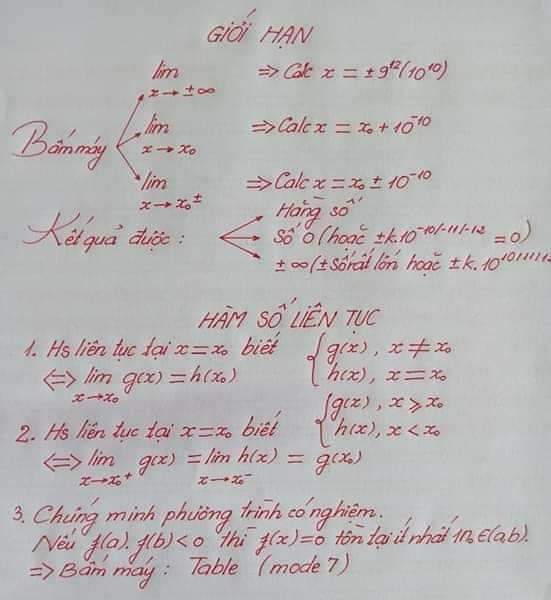 GIỚI HẠN
lim x → ±∞ => Calc x = ± 9^12 (10^10)
Bấm máy lim x → x₀ => Calc x = x₀ + 10^-10
lim x → x₀± => Calc x = x₀ ± 10^-10
Hằng số
Kết quả được : Số 0 (hoặc ± k.10^-10/-11/-12 = 0)
± ∞ (± Số rất lớn hoặc ± k. 10^10/11/12
HÀM SỐ LIÊN TỤC
1. Hs liên tục tại x = x₀ biết { g(x) , x ≠ x₀
<=> lim x→x₀ g(x) = h(x₀) h(x) , x = x₀
{ g(x) , x ≥ x₀
2. Hs liên tục tại x = x₀ biết h(x), x < x₀
<=> lim x→x₀⁺ g(x) = lim x→x₀⁻ h(x) = g(x₀)
3. Chứng minh phương trình có nghiệm.
Nếu f(a). f(b) < 0 thì f(x) = 0 tồn tại ít nhất 1 n₀ ∈ (a,b).
=> Bấm máy : Table (mode 7)